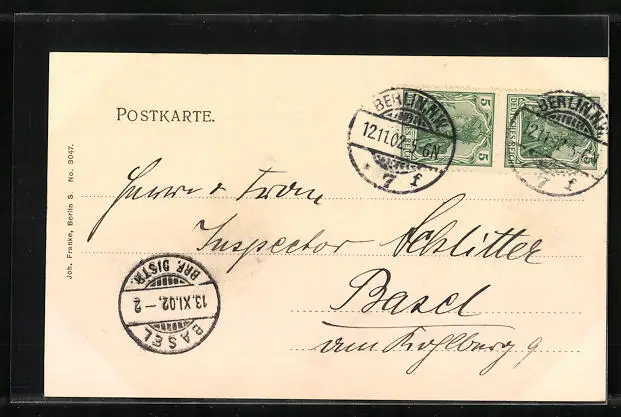 POSTKARTE.
Joh. Franke, Berlin S No. 3047.
5
DEUTSCHES REICH
5
5
DEUTSCHES REICH
BERLIN N.W.
12.11.02. 5-6N
* 7 f
BERLIN N.W.
12.11.02. 5-6N
* 7 f
Herrn & Frau
Inspector Schlitter
Basel
9
BASEL
13.XI.02.–2
BRF. DISTR.